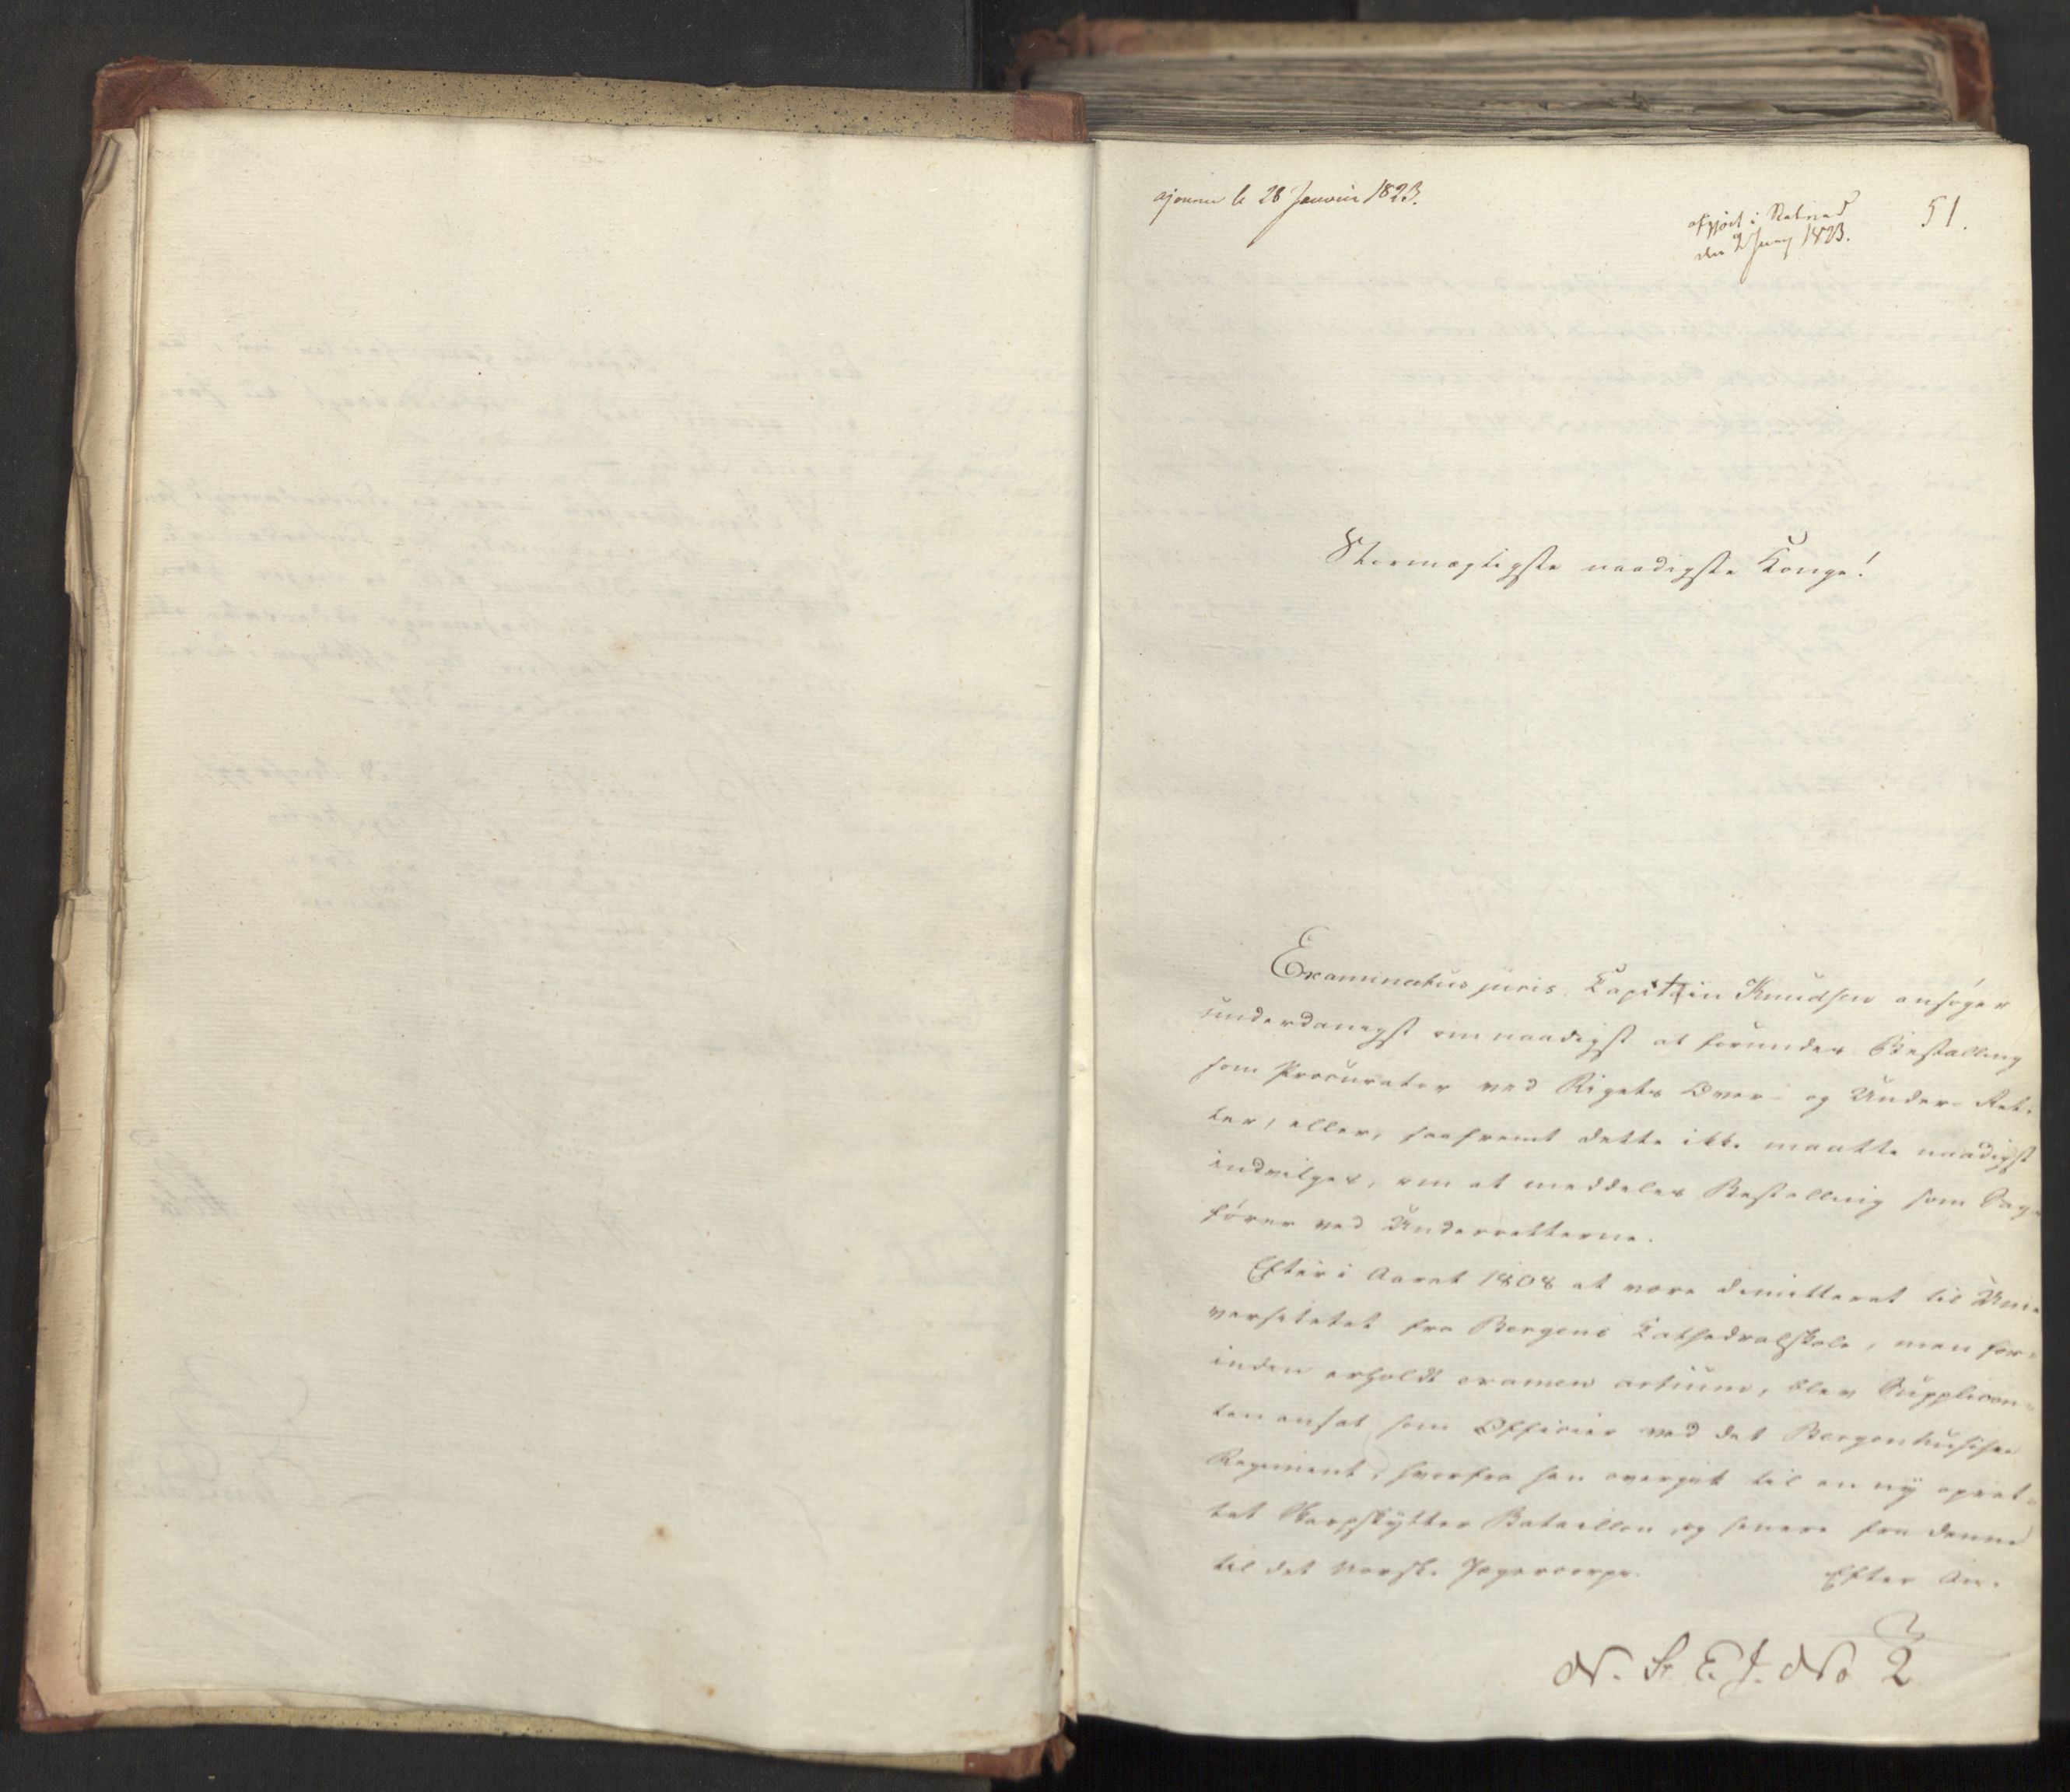 ajourné le 28 Janvier 1823.
afgjort i Statsraad
den 2 Juny 1823.
51.
Stormægtigste naadigste Konge!
Examinatus juris Capitain Knudsen ansøger
underdanigst om naadigst at forundes Bestalling
som Procurator ved Rigets Over- og Under-Ret-
ter, eller, saafremt dette ikke maatte naadigst
indvilges, om at meddeles Bestalling som Sag-
fører ved Underretterne.
Efter i Aaret 1808 at være dimitteret til Uni-
versitetet fra Bergens Cathedralskole, men for-
inden erholdt examen artium, blev Supplican-
ten ansat som Officier ved det Bergenhusiske
Regiment, hvorfra han overgik til en ny opret-
tet Skarpskytter Bataillon, og senere fra denne
til det norske Jægercorps.
Efter An-
N. St. E. J. No 2